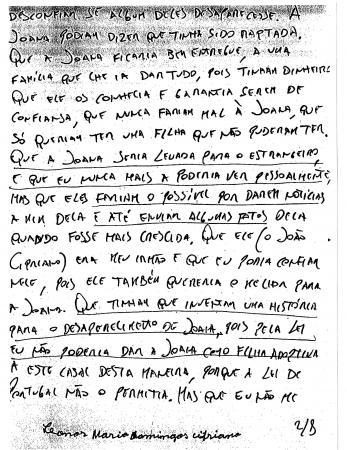 DESCONFIM SE ALGUM DELES DESAPARECESSE. A
JOANA PODIAM DIZER QUE TINHA SIDO RAPTADA.
QUE A JOANA FICARIA BEM ENTREGUE, A UMA
FAMÍLIA QUE LHE IA DAR TUDO, POIS TINHAM DINHEIRO
QUE ELE OS CONHECIA E GARANTIA SEREM DE
CONFIANSA, QUE NUNCA FARIAM MAL À JOANA, QUE
SÓ QUERIAM TER UMA FILHA QUE NÃO PUDERAM TER.
QUE A JOANA SERIA LEVADA PARA O ESTRANGEIRO,
E QUE EU NUNCA MAIS A PODERIA VER PESSOALMENTE,
MAS QUE ELES FARIAM O POSSÍVEL POR DAREM NOTÍCIAS
A MIM DELA E ATÉ ENVIAR ALGUMAS FOTOS DELA
QUANDO FOSSE MAIS CRESCIDA. QUE ELE (O JOÃO
CIPRIANO) ERA MEU IRMÃO E QUE EU PODIA CONFIAR
NELE, POIS ELE TAMBÉM QUERERIA O MELHOR PARA
A JOANA. QUE TINHAM QUE INVENTAR UMA HISTÓRIA
PARA O DESAPARECIMENTO DE JOANA, POIS PELA LEI
EU NÃO PODERIA DAR A JOANA COMO FILHA ADOPTIVA
A ESTE CASAL DESTA MANEIRA, PORQUE A LEI DE
PORTUGAL NÃO O PERMITIA. MAS QUE EU NÃO ME
Leonor Maria Domingos Cipriano
2/8